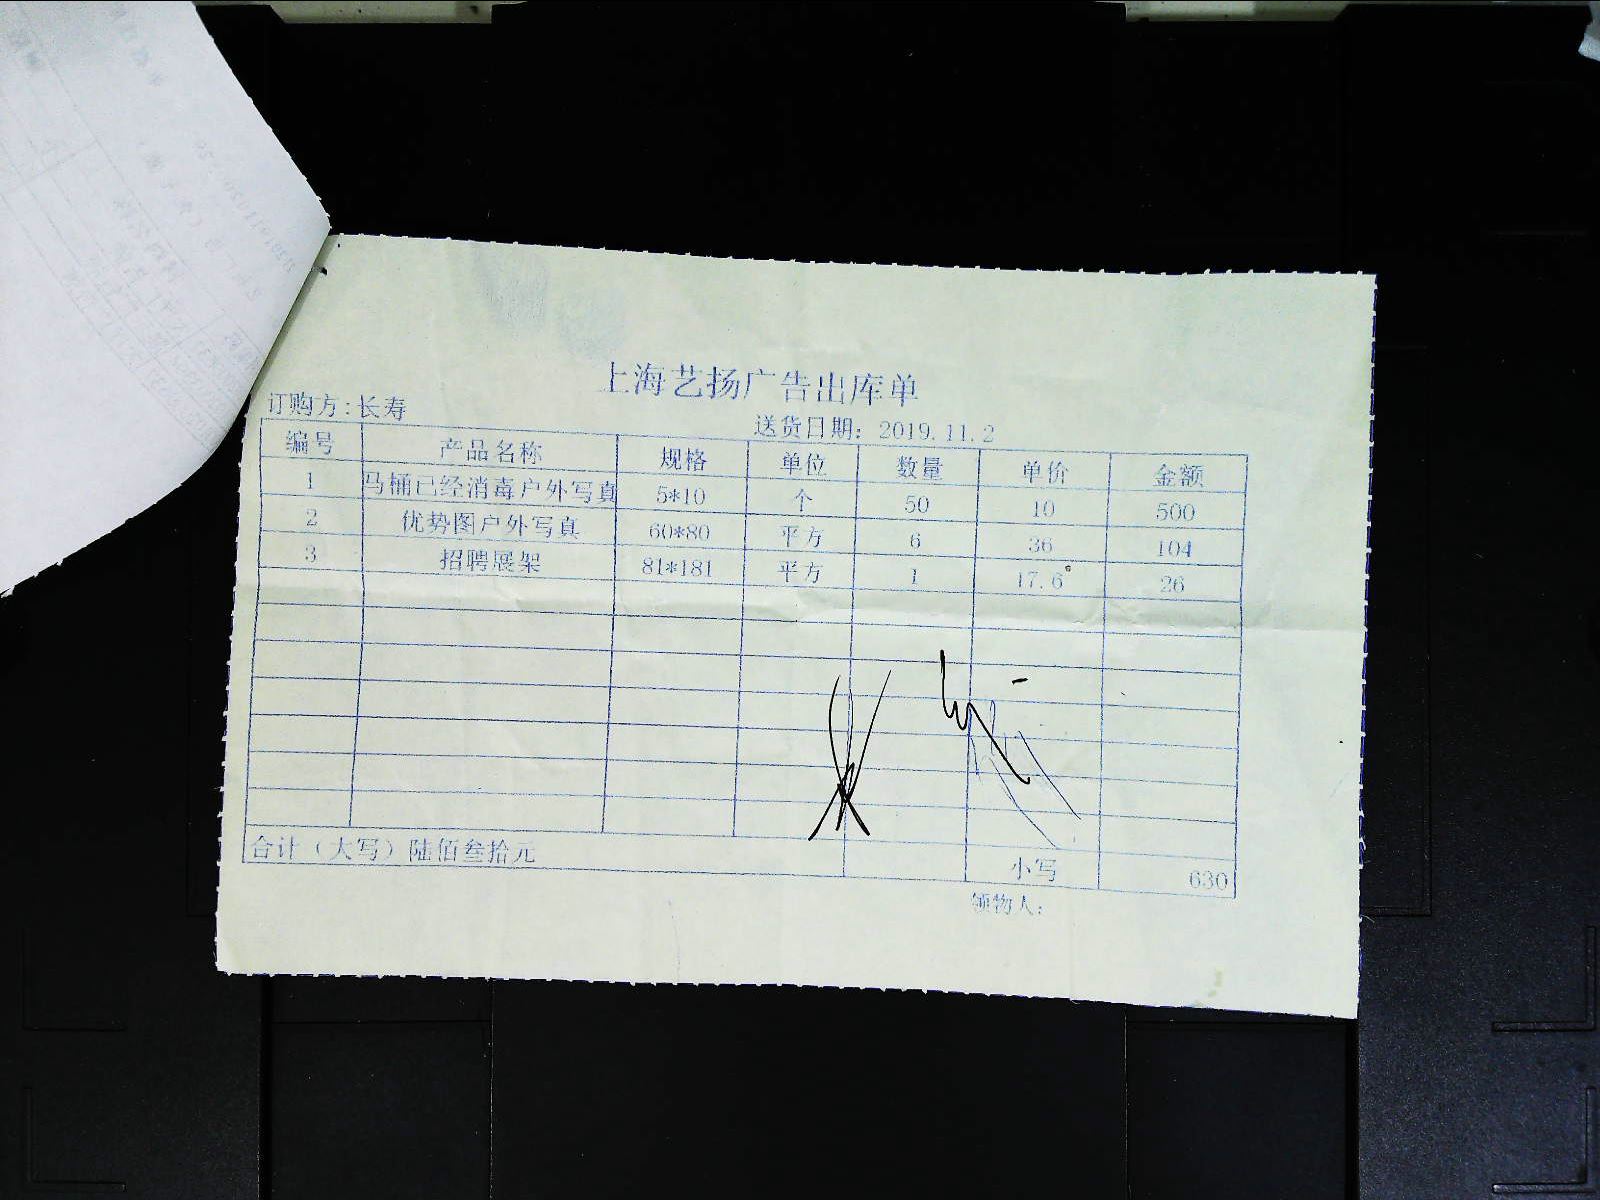 上海艺扬广告出库单
订购方:长寿 送货日期: 2019.11.2
编号 产品名称 规格 单位 数量 单价 金额
1 马桶已经消毒户外写真 5*10 个 50 10 500
2 优势图户外写真 60*80 平方 6 36 104
3 招聘展架 81*181 平方 1 17.6 26
合计（大写）陆佰叁拾元 小写 630
领物人: